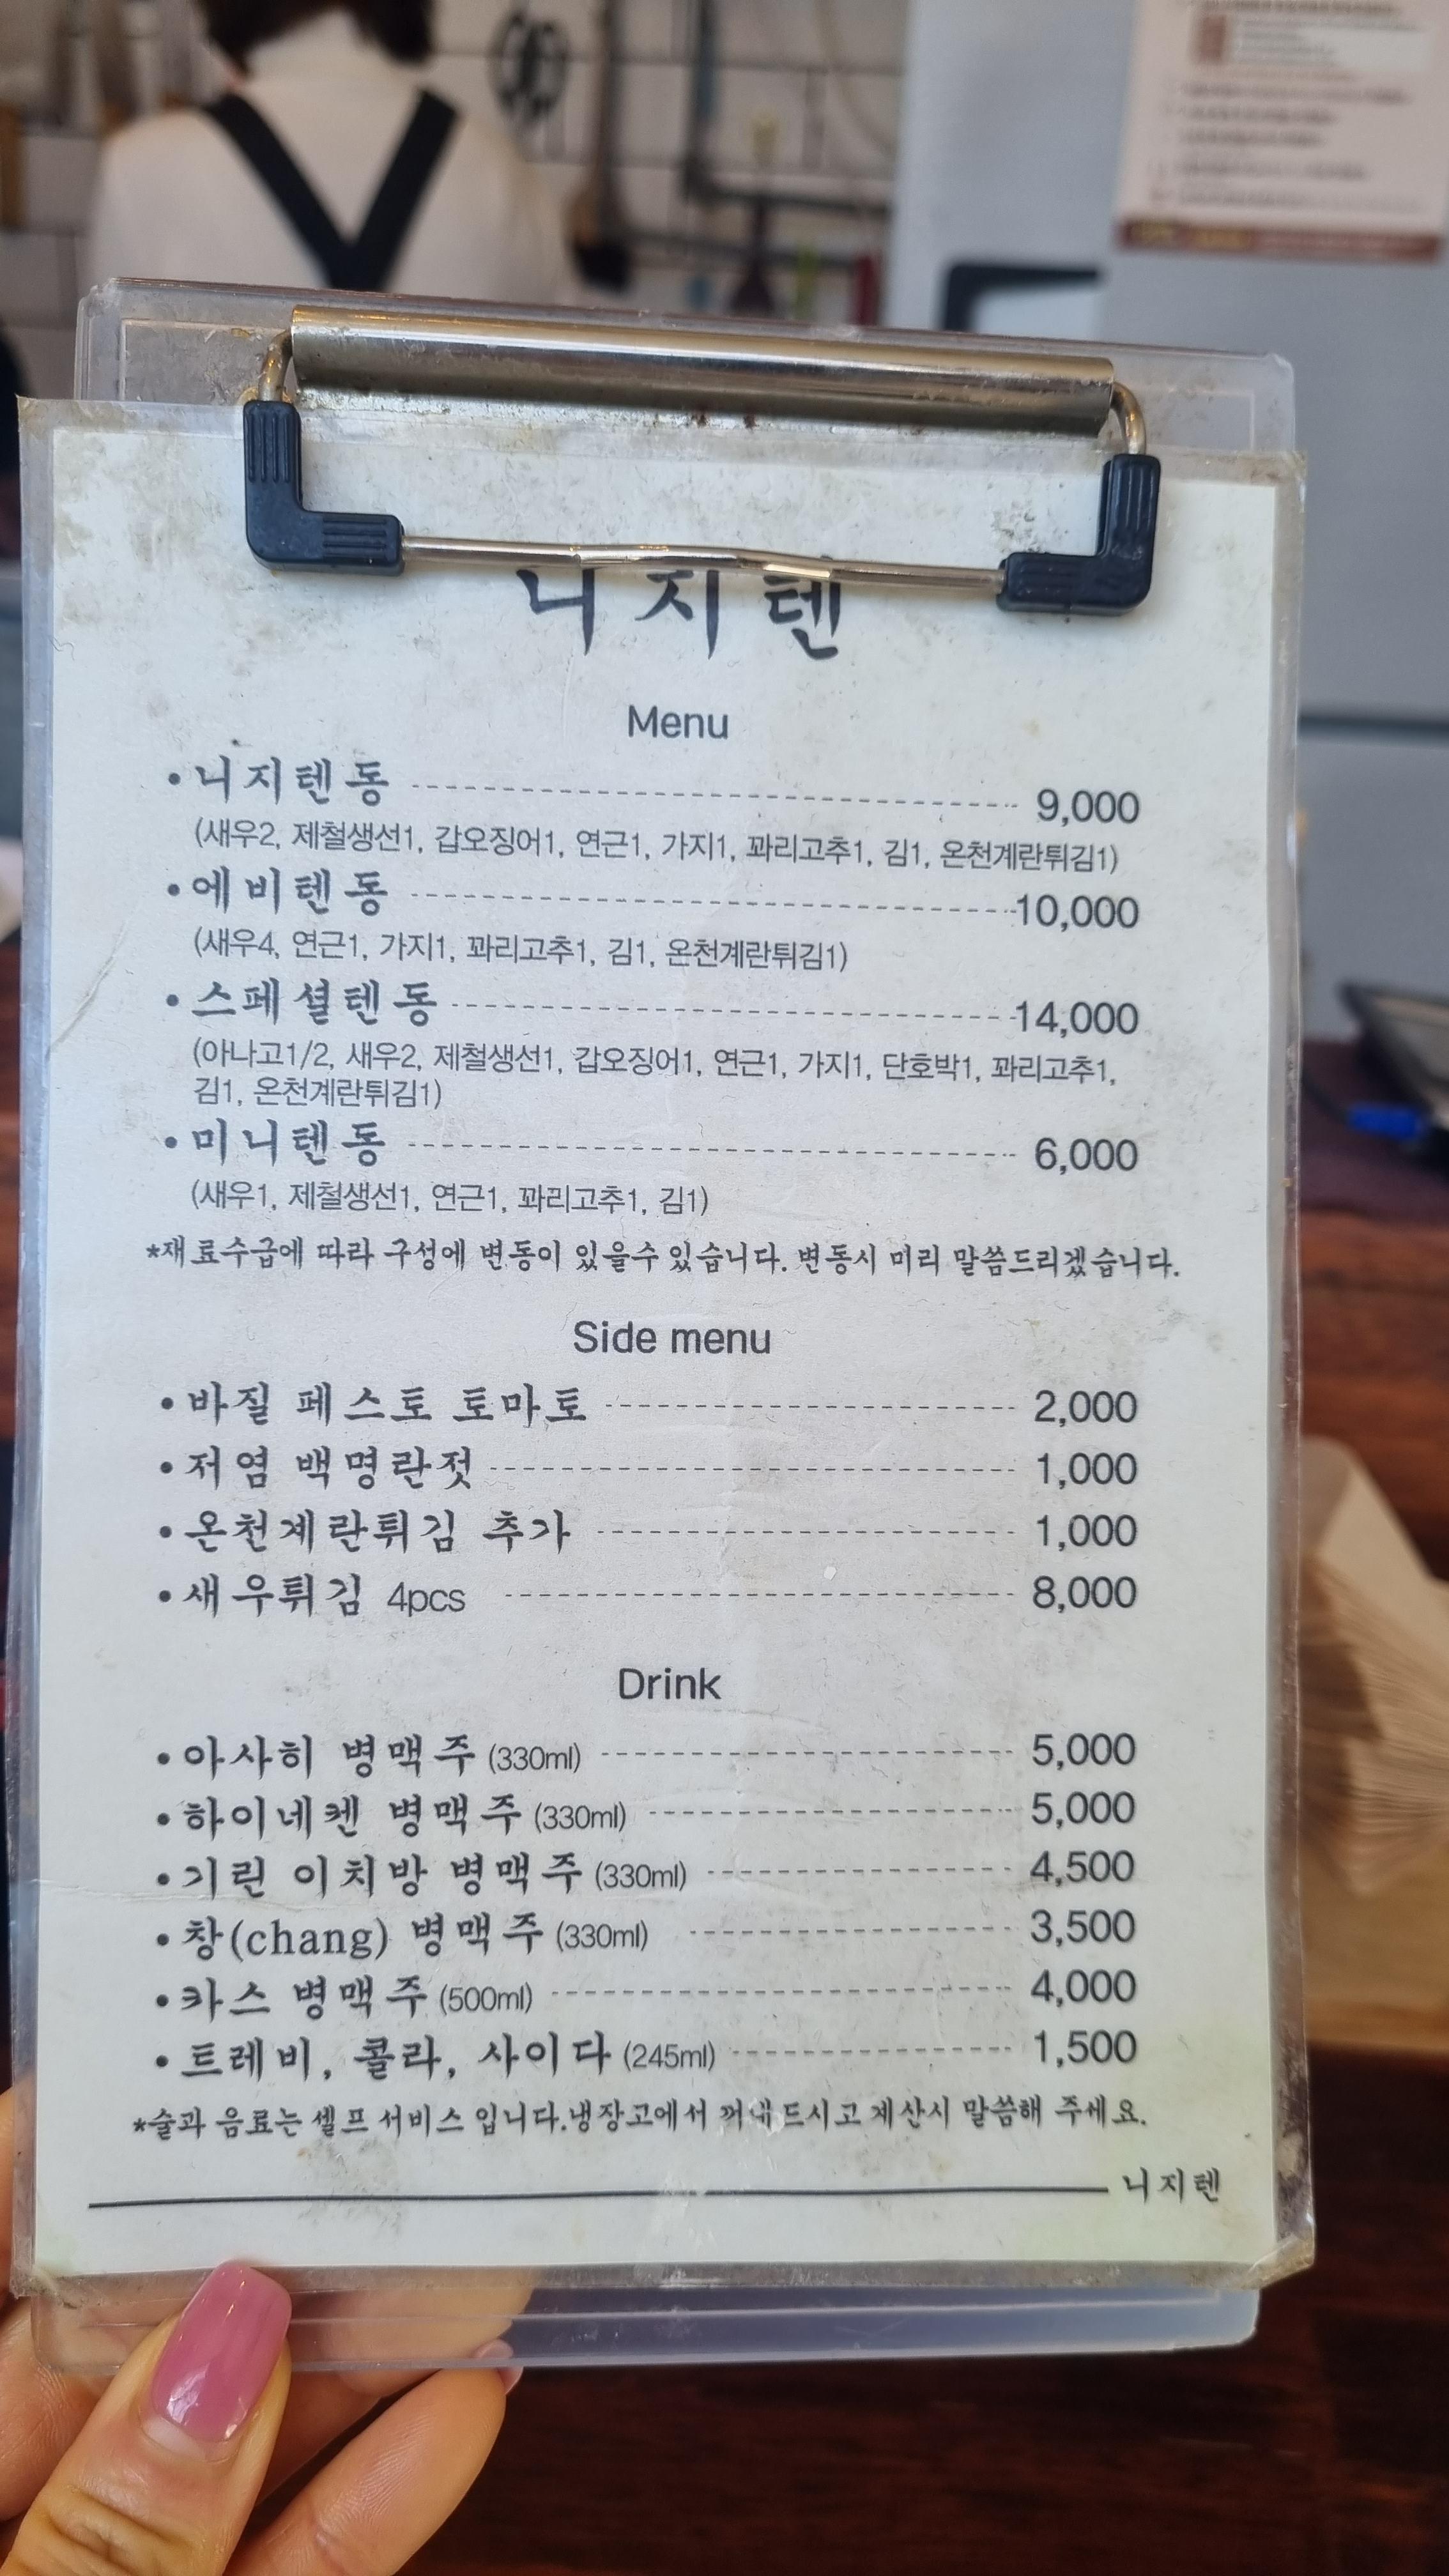 니지텐
Menu
•니지텐동 ---------- 9,000
(새우2, 제철생선1, 갑오징어1, 연근1, 가지1, 꽈리고추1, 김1, 온천계란튀김1)
•에비텐동 ---------- 10,000
(새우4, 연근1, 가지1, 꽈리고추1, 김1, 온천계란튀김1)
•스페셜텐동 ---------- 14,000
(아나고1/2, 새우2, 제철생선1, 갑오징어1, 연근1, 가지1, 단호박1, 꽈리고추1,
김1, 온천계란튀김1)
•미니텐동 ---------- 6,000
(새우1, 제철생선1, 연근1, 꽈리고추1, 김1)
*재료수급에 따라 구성에 변동이 있을수 있습니다. 변동시 미리 말씀드리겠습니다.
Side menu
•바질 페스토 토마토 ---------- 2,000
•저염 백명란젓 ---------- 1,000
•온천계란튀김 추가 ---------- 1,000
•새우튀김 4pcs ---------- 8,000
Drink
•아사히 병맥주 (330ml) ---------- 5,000
•하이네켄 병맥주 (330ml) ---------- 5,000
•기린 이치방 병맥주 (330ml) ---------- 4,500
•창(chang) 병맥주 (330ml) ---------- 3,500
•카스 병맥주 (500ml) ---------- 4,000
•트레비, 콜라, 사이다 (245ml) ---------- 1,500
*술과 음료는 셀프 서비스 입니다.냉장고에서 꺼내드시고 계산시 말씀해 주세요.
니지텐